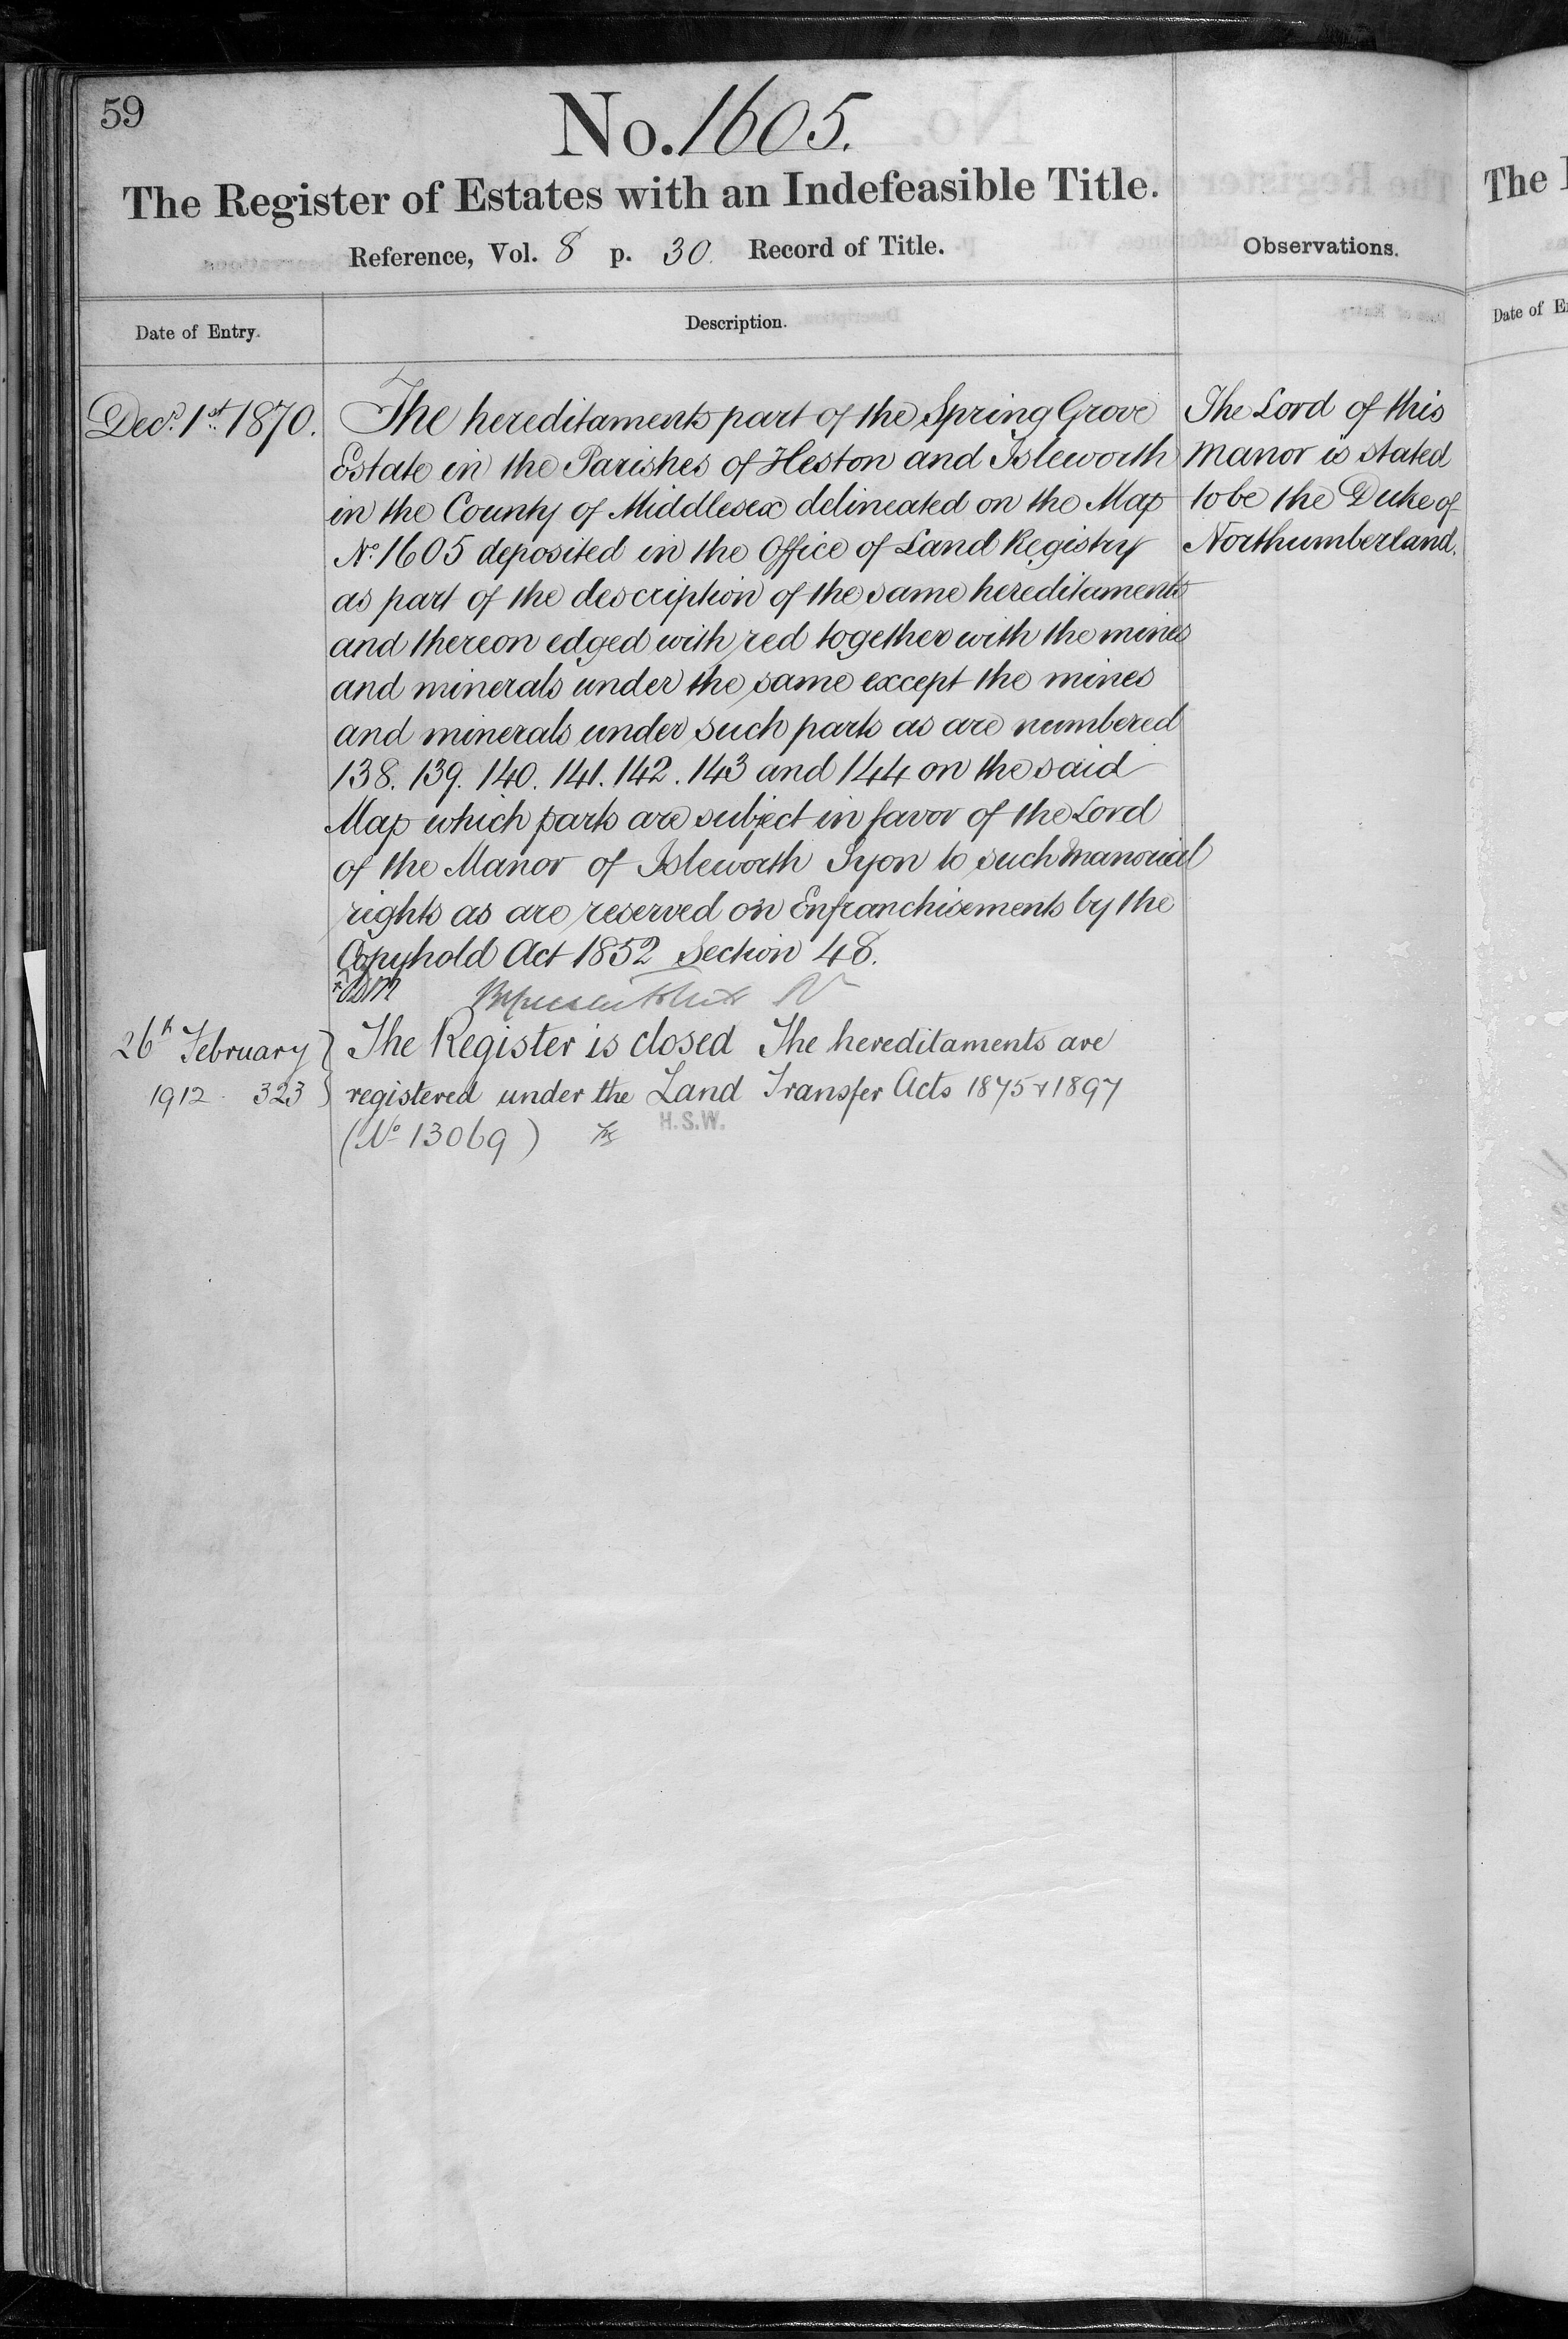 59
No. 1605.
The Register of Estates with an Indefeasible Title.
Reference, Vol. 8 p. 30. Record of Title.
Observations.
Date of Entry.
Description.
Decr. 1st. 1870.
The hereditaments part of the Spring Grove
Estate in the Parishes of Heston and Isleworth
in the County of Middlesex delineated on the Map
No. 1605 deposited in the Office of Land Registry
as part of the description of the same hereditaments
and thereon edged with red together with the mines
and minerals under the same except the mines
and minerals under such parts as are numbered
138. 139. 140. 141. 142. 143 and 144 on the said
Map which parts are subject in favor of the Lord
of the Manor of Isleworth Syon to such manorial
rights as are reserved on Enfranchisements by the
Copyhold Act 1852 Section 48.
The Lord of this
Manor is stated
to be the Duke of
Northumberland.
26th February
1912. 323
The Register is closed The hereditaments are
registered under the Land Transfer Acts 1875 & 1897
(No 13069)
H.S.W.
The
Date of